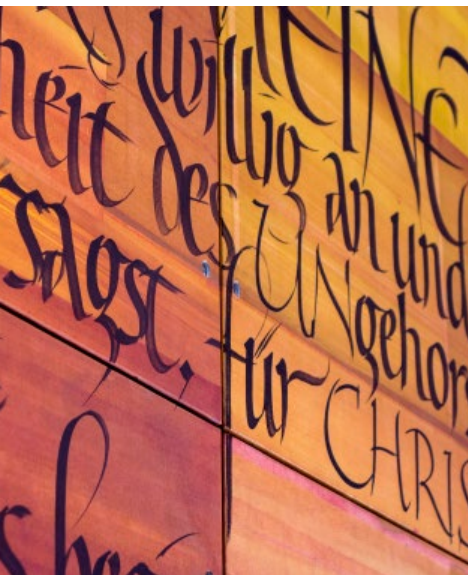 EINE
willig an und
heit des UNgehor
sagst. Für CHRIS